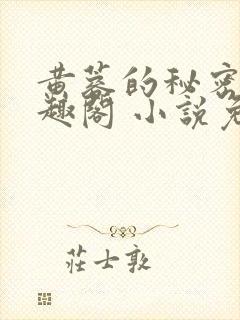 黄蓉的秘密
趣閣 小說免
莊士敦